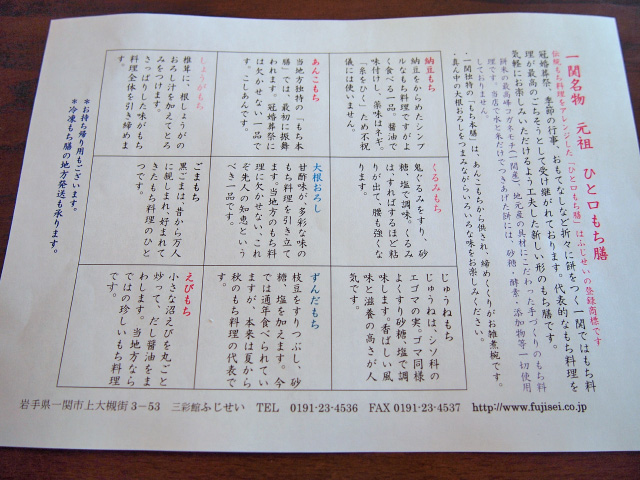 一関名物　元祖　ひと口もち膳
伝統もち料理をアレンジした「ひと口もち膳」はふじせいの登録商標です
冠婚葬祭、季節の行事、おもてなしなど折々に餅をつく一関ではもち料
理が最高のごちそうとして受け継がれております。代表的なもち料理を
気軽にお楽しみいただけるよう工夫した新しい形のもち膳です。
餅米の最高峰コガネモチ(一関産)、地元産の具材にこだわった手づくりのもち料
理です。当店で水と米だけでつきあげた餅には、砂糖、酵素、添加物等一切使用
しておりません。
・一関独特の「もち本膳」は、あんこもちから供され、締めくくりがお雑煮椀です。
・真ん中の大根おろしをつまみながらいろいろな味をお楽しみください。
納豆もち
納豆をからめたシンプ
ルなもち料理ですがよ
く食べる一品。醤油で
味付けし、薬味はネギ。
「糸をひく」ため不祝
儀には使いません。
くるみもち
鬼ぐるみをすり、砂
糖、塩で調味。くるみ
は、すればするほど粘
りが出て、腰も強くな
ります。
じゅうねもち
じゅうねは、シソ科の
エゴマの実。ゴマ同様
よくすり砂糖、塩で調
味します。香ばしい風
味と滋養の高さが人
気です。
あんこもち
当地方独特の「もち本
膳」では、最初に振舞
われます。冠婚葬祭に
は欠かせない一品で
す。こしあんです。
大根おろし
甘酢味が、多彩な味の
もち料理を引き立て
ます。当地方のもち料
理に欠かせない、これ
ぞ先人の知恵という
べき一品です。
ずんだもち
枝豆をすりつぶし、砂
糖、塩を加えます。今
では通年食べられてい
ますが、本来は夏から
秋のもち料理の代表で
す。
しょうがもち
椎茸に、根しょうがの
おろし汁を加えてとろ
みをつけます。
さっぱりした味がもち
料理全体を引き締めま
す。
ごまもち
黒ごまは、昔から万人
に親しまれ好まれて
きたもち料理のひと
つです。
えびもち
小さな沼えびを丸ごと
炒って、だし醤油をま
わします。当地方なら
ではの珍しいもち料理
です。
＊お持ち帰り用もございます。
＊冷凍もち膳の地方発送も承ります。
岩手県一関市上大槻街３－５３　三彩館ふじせい　TEL　0191-23-4536　FAX 0191-23-4537　http://www.fujisei.co.jp